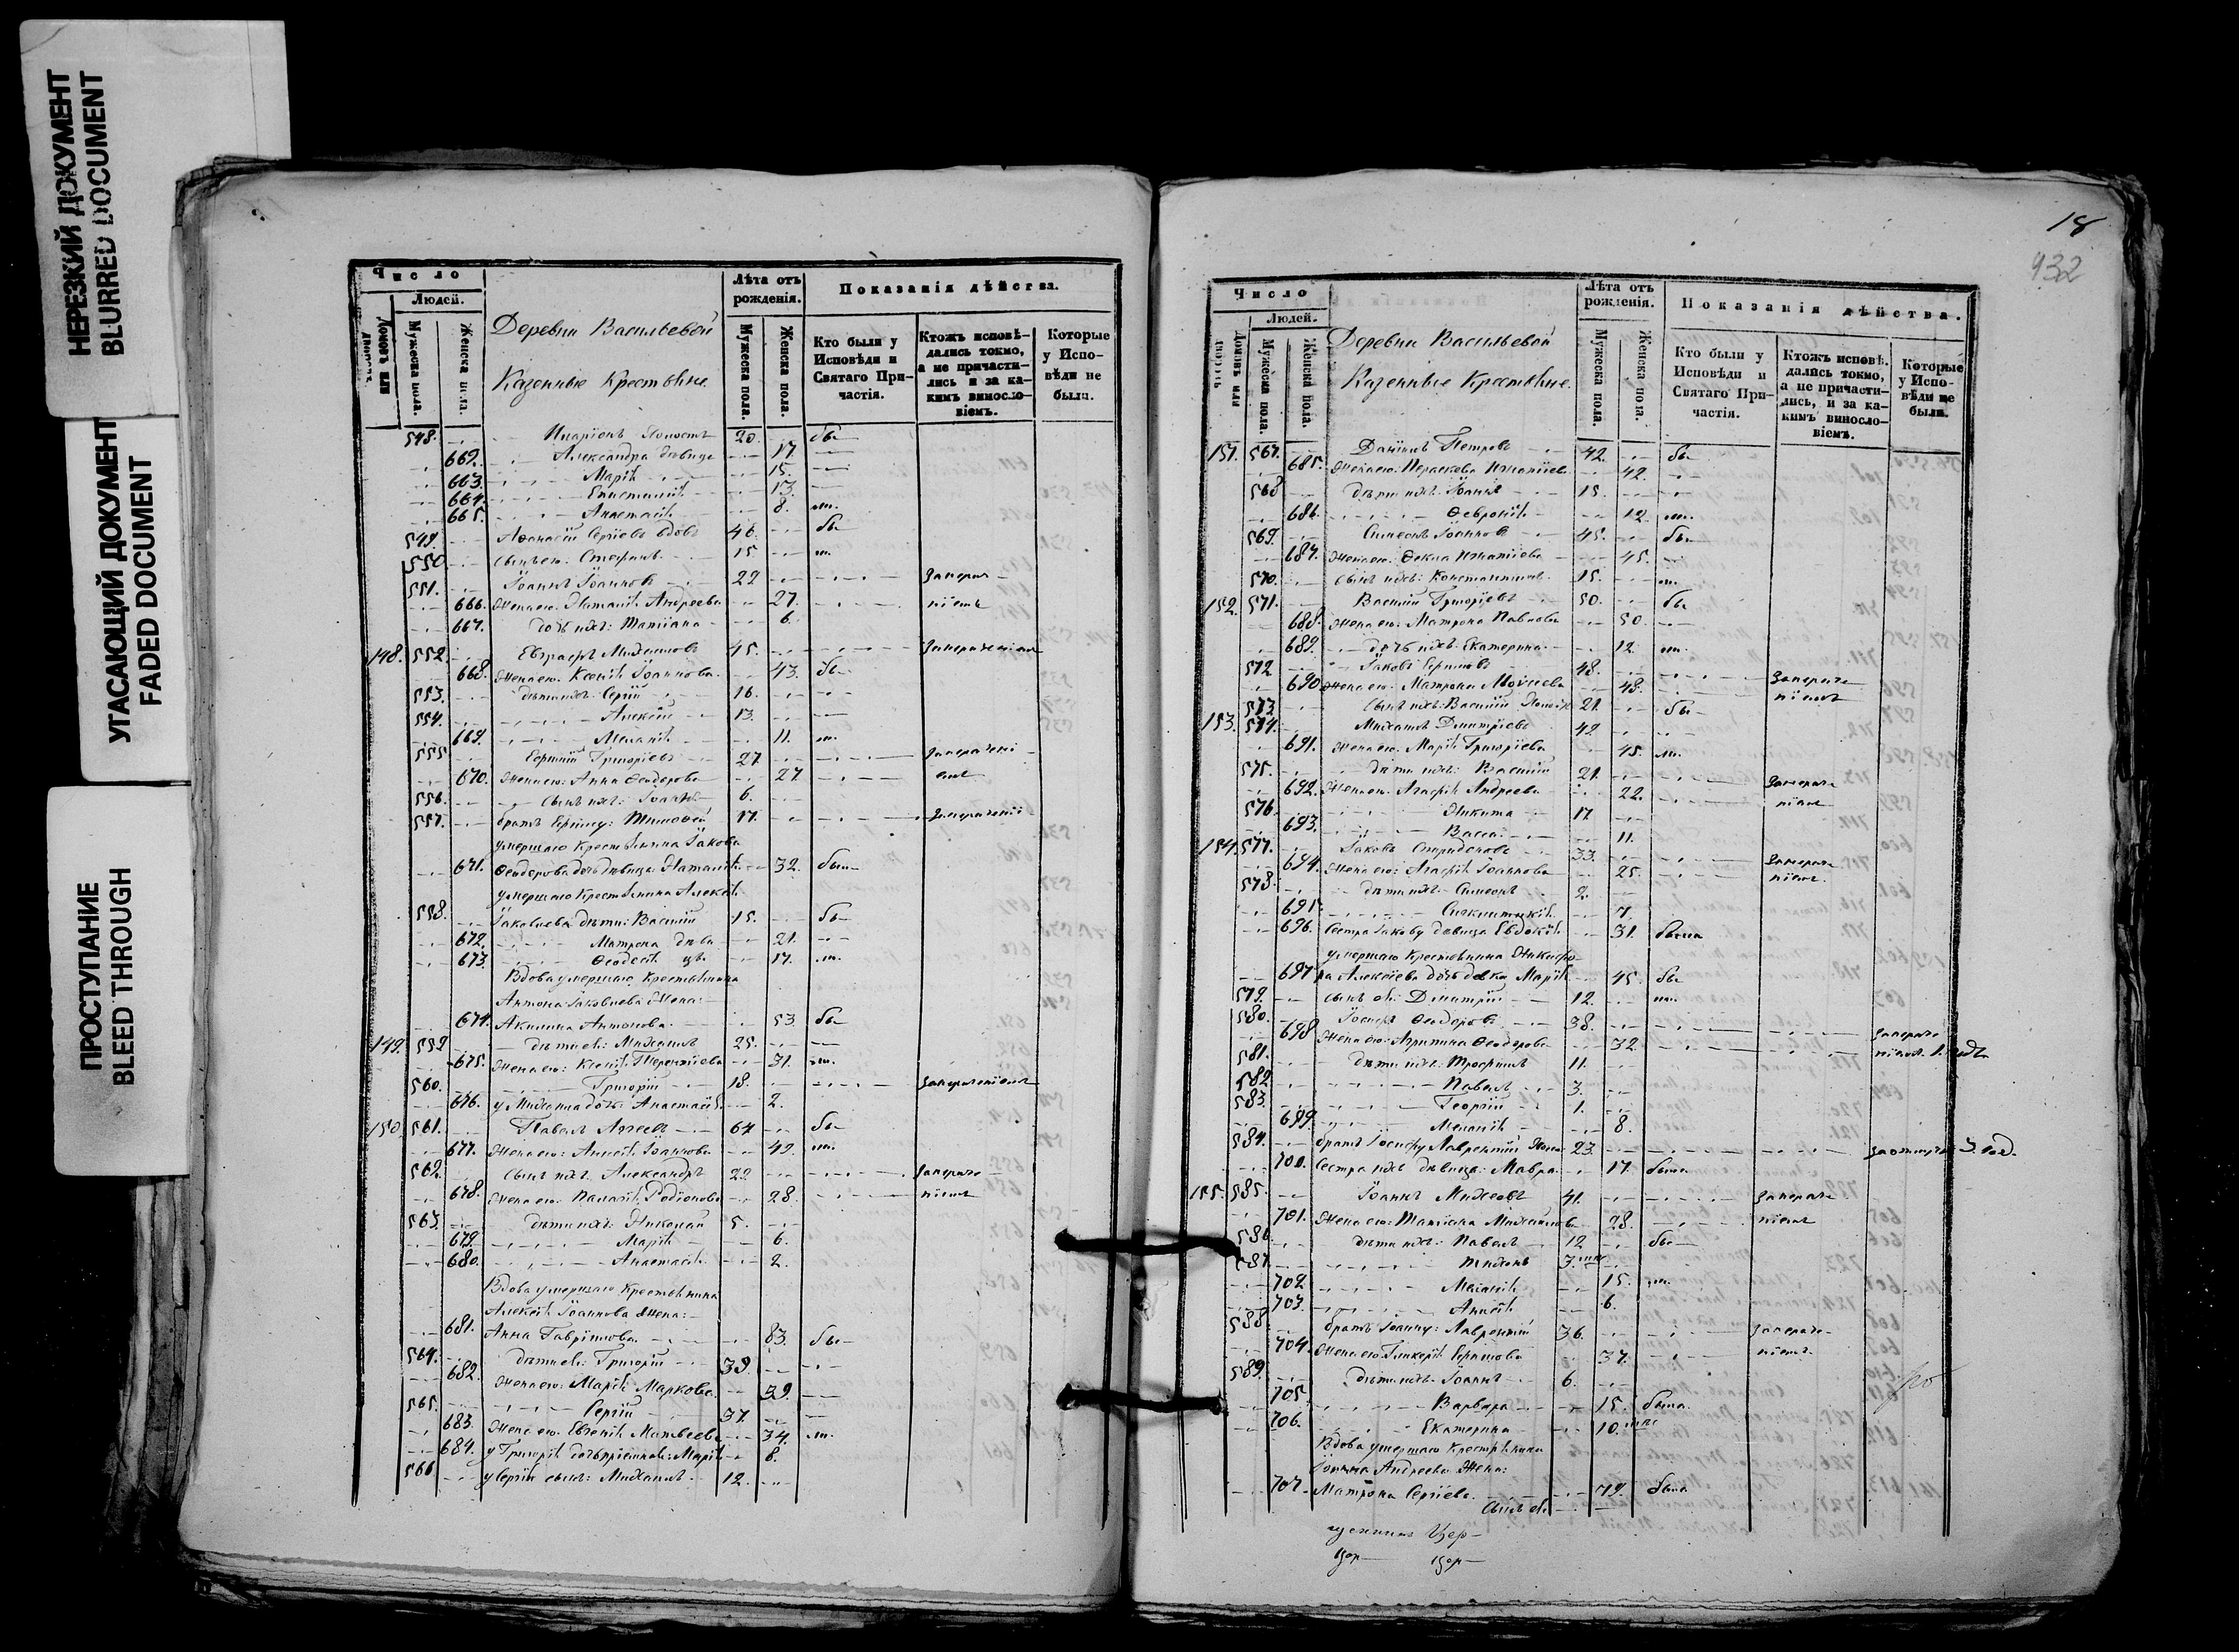 НЕРЕЗКИЙ ДОКУМЕНТ
BLURRED DOCUMENT
УГАСАЮЩИЙ ДОКУМЕНТ
FADED DOCUMENT
ПРОСТУПАНИЕ
BLEED THROUGH
Число
Людей.
Домовъ или дворовъ.
Мужеска пола.
Женска пола.
Деревни Васильевой
Казенные Крестьяне.
Лѣта отъ рожденія.
Мужеска пола.
Женска пола.
Показанія дѣйства.
Кто были у Исповѣди и Святаго Причастія.
Ктожъ исповѣдались токмо, а не причастились и за какимъ винословіемъ.
Которые у Исповѣди не были.
548. Иларіонъ Холостъ 20. бы
662. Александра дѣвица 17.
663. Марія 15.
664. 13.
665. Анастасія 8. м.
549. Аѳанасій Сергіевъ вдовъ 46. бы
550. Сынъ его Стефанъ 15. м.
551. Іоаннъ Іоанновъ 22
666. Жена его Наталія Андреева 27.
667. дочь ихъ: Татіана 6.
148. 552. Евграфъ Михаиловъ 45.
668. Жена его Ксенія Іоаннова 43. бы
553. дѣти ихъ: Сергій 16.
554. Алексій 13.
669. Меланія 11. м.
555. Григоріевъ 27.
670. Жена его: Анна Ѳеодорова 27.
556. Сынъ ихъ: Іоаннъ 6.
557. братъ Тимоѳей 17.
умершаго Крестьянина Іакова
671. Ѳеодорова дочь дѣвица Наталія 32. была
умершаго Крестьянина Алексія
558. Іаковлева дѣти: Василій 15. бы
672. Матрона дѣва 21.
673. Ѳеодосія 17. м.
Вдова умершаго Крестьянина
Антона Іаковлева Жена:
674. Акилина Антонова 53. бы
149. 559. дѣти ея: Михаилъ 25.
675. Жена его: Ксенія Терентіева 31. м.
560. Григорій 18.
676. у Михаила дочь Анастасія 2.
150. 561. Павелъ Агѣевъ 64 бы
677. Жена его: Анисія Іоаннова 49. м.
562. Сынъ ихъ Александръ 22
678. Жена его: Пелагія Родіонова 28.
563. дѣти ихъ: Николай 5.
679. Марія 6.
680. Анастасія 2.
Вдова умершаго Крестьянина
Алексія Іоаннова Жена:
681. Анна Гавріилова 83. бы
564. дѣти ея: Григорій 39.
682. Жена его: Марія Маркова 39.
565. Сергій 37.
683. Жена его Евгенія Матвѣева 34. м.
684. у Григорія дочь Марія 8.
566. у Сергія сынъ: Михаилъ 12.
18
932
Число
Людей.
Домовъ или дворовъ.
Мужеска пола.
Женска пола.
Деревни Васильевой
Казенные Крестьяне.
Лѣта отъ рожденія.
Мужеска пола.
Женска пола.
Показанія дѣйства.
Кто были у Исповѣди и Святаго Причастія.
Ктожъ исповѣдались токмо, а не причастились, и за какимъ винословіемъ.
Которые у Исповѣди не были.
151. 567. Даніилъ Петровъ 42. бы
685. Жена его: Параскева Игнатіева 42.
568 дѣти ихъ: Іоаннъ 15.
686. Ѳевронія 12. м.
569. Симеонъ Іоанновъ 45. бы
687. Жена его: Ѳекла Игнатіева 45.
570. Сынъ ихъ: Константинъ 15. м.
152. 571. Василій Григоріевъ 50. бы
688. Жена его: Матрона Павлова 50.
689. дочь ихъ Екатерина 12. м.
572 Іаковъ 48.
690. Жена его: Матрона Моисеева 48.
573. Сынъ ихъ: Василій 21. бы
153. 574. Михаилъ Дмитріевъ 42
691. Жена его: Марія Григоріева 45. м.
575. дѣти ихъ: Василій 21.
692. Жена его: Агафія Андреева 22.
576. Никита 17
693. Васса 11.
154. 577. Іаковъ Спиридоновъ 33.
694. Жена его: Агафія Іоаннова 25.
578. дѣти ихъ: Симеонъ 2.
695. 7.
696. Сестра Іакову дѣвица Евдокія 31. была
умершаго Крестьянина Никифо-
697. ра Алексіева дочь девка Марія 45. бы
579. сынъ ея: Димитрій 12. м.
580. Іосифъ Ѳеодоровъ 38.
698 Жена его: Агрипина Ѳеодорова 32.
581. дѣти ихъ: Трофимъ 11.
582. Павелъ 3.
583. Георгій 1.
699. Меланія 8.
584. братъ Іосифу Лаврентій 23.
700. Сестра ихъ дѣвица: Мавра 17. была
155. 585. Іоаннъ 41.
701. Жена его: Татіана Михаилова 28.
586. дѣти ихъ: Павелъ 12 бы
587. Тихонъ 7.
702. Меланія 15. м.
703. Анисія 6.
588. братъ Іоанну: Лаврентій 36.
704. Жена его Гликерія 37.
589. дѣти ихъ: Іоаннъ 6.
705. Варвара 15. была
706. Екатерина 10.
Вдова умершаго Крестьянина
Іоанна Андреева Жена:
707. Матрона Сергіева 79. была
Сынъ ея